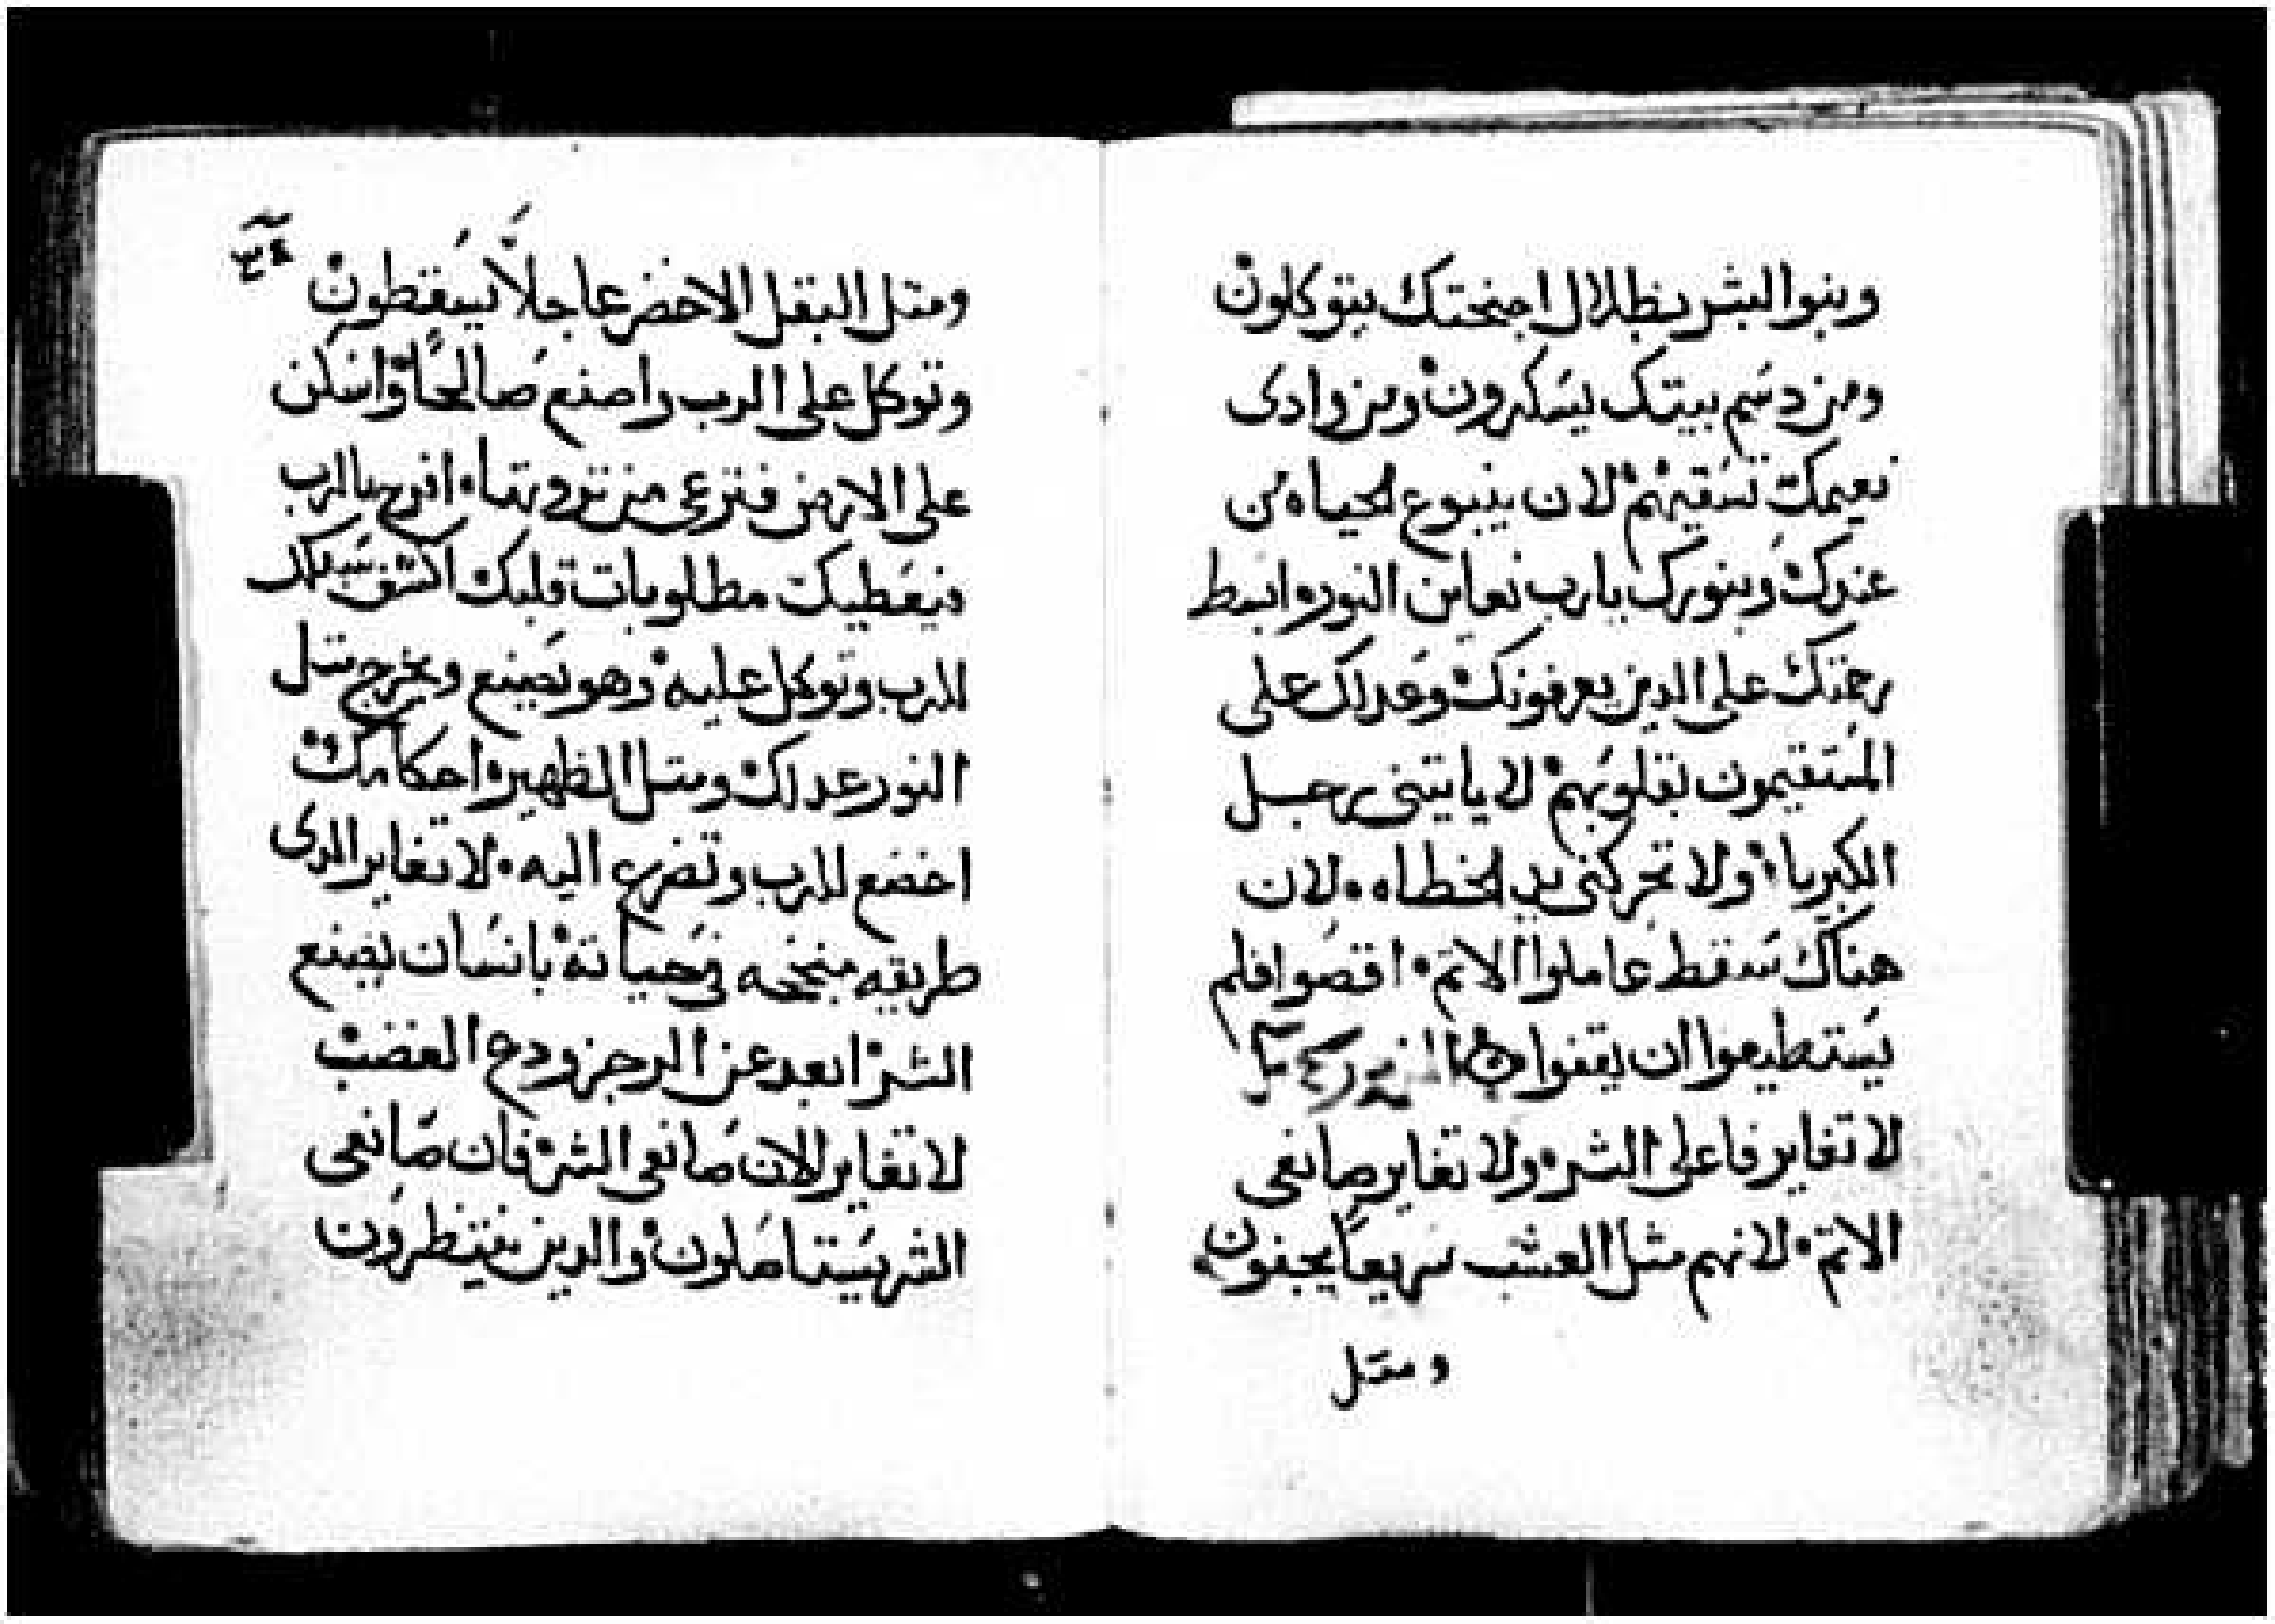 وبنوا البشر بظلال اجنحتك يتوكلون
ومن دسم بيتك يسكرون ومن وادى
نعيمك تسقيهم لان ينبوع الحياه من
عندك وبنورك يارب نعاين النور وابسط
رحمتك على الدين يعرفونك وعدلك على
المستقيمون بقلوبهم لا ياتينى رجل
الكبرياء ولا تحركنى يد الخطاه لان
هناك سقط عاملوا الاتم اقصوا فلم
يستطيعوا ان يقفوا
لا تغاير فاعلى الشر ولا تغاير صانعى
الاتم لانهم مثل العشب سريعا يجفون
ومتل
ومتل البقل الاخضر عاجلًا يسقطون
وتوكل على الرب واصنع صالحًا واسكن
على الارض فترعى من تروتها افرح بالرب
فيعطيك مطلوبات قلبك اكشف سبلك
للرب وتوكل عليه وهو يصنع ويخرج متل
النور عدلك ومتل الظهيره احكامك
اخضع للرب وتضرع اليه لا تغاير الدى
طريقه منجحه فى حياته بانسان يصنع
الشر ابعد عن الرجز ودع الغضب
لا تغاير للان صانعى الشر فان صانعى
الشر يستاصلون والدين ينتظرون